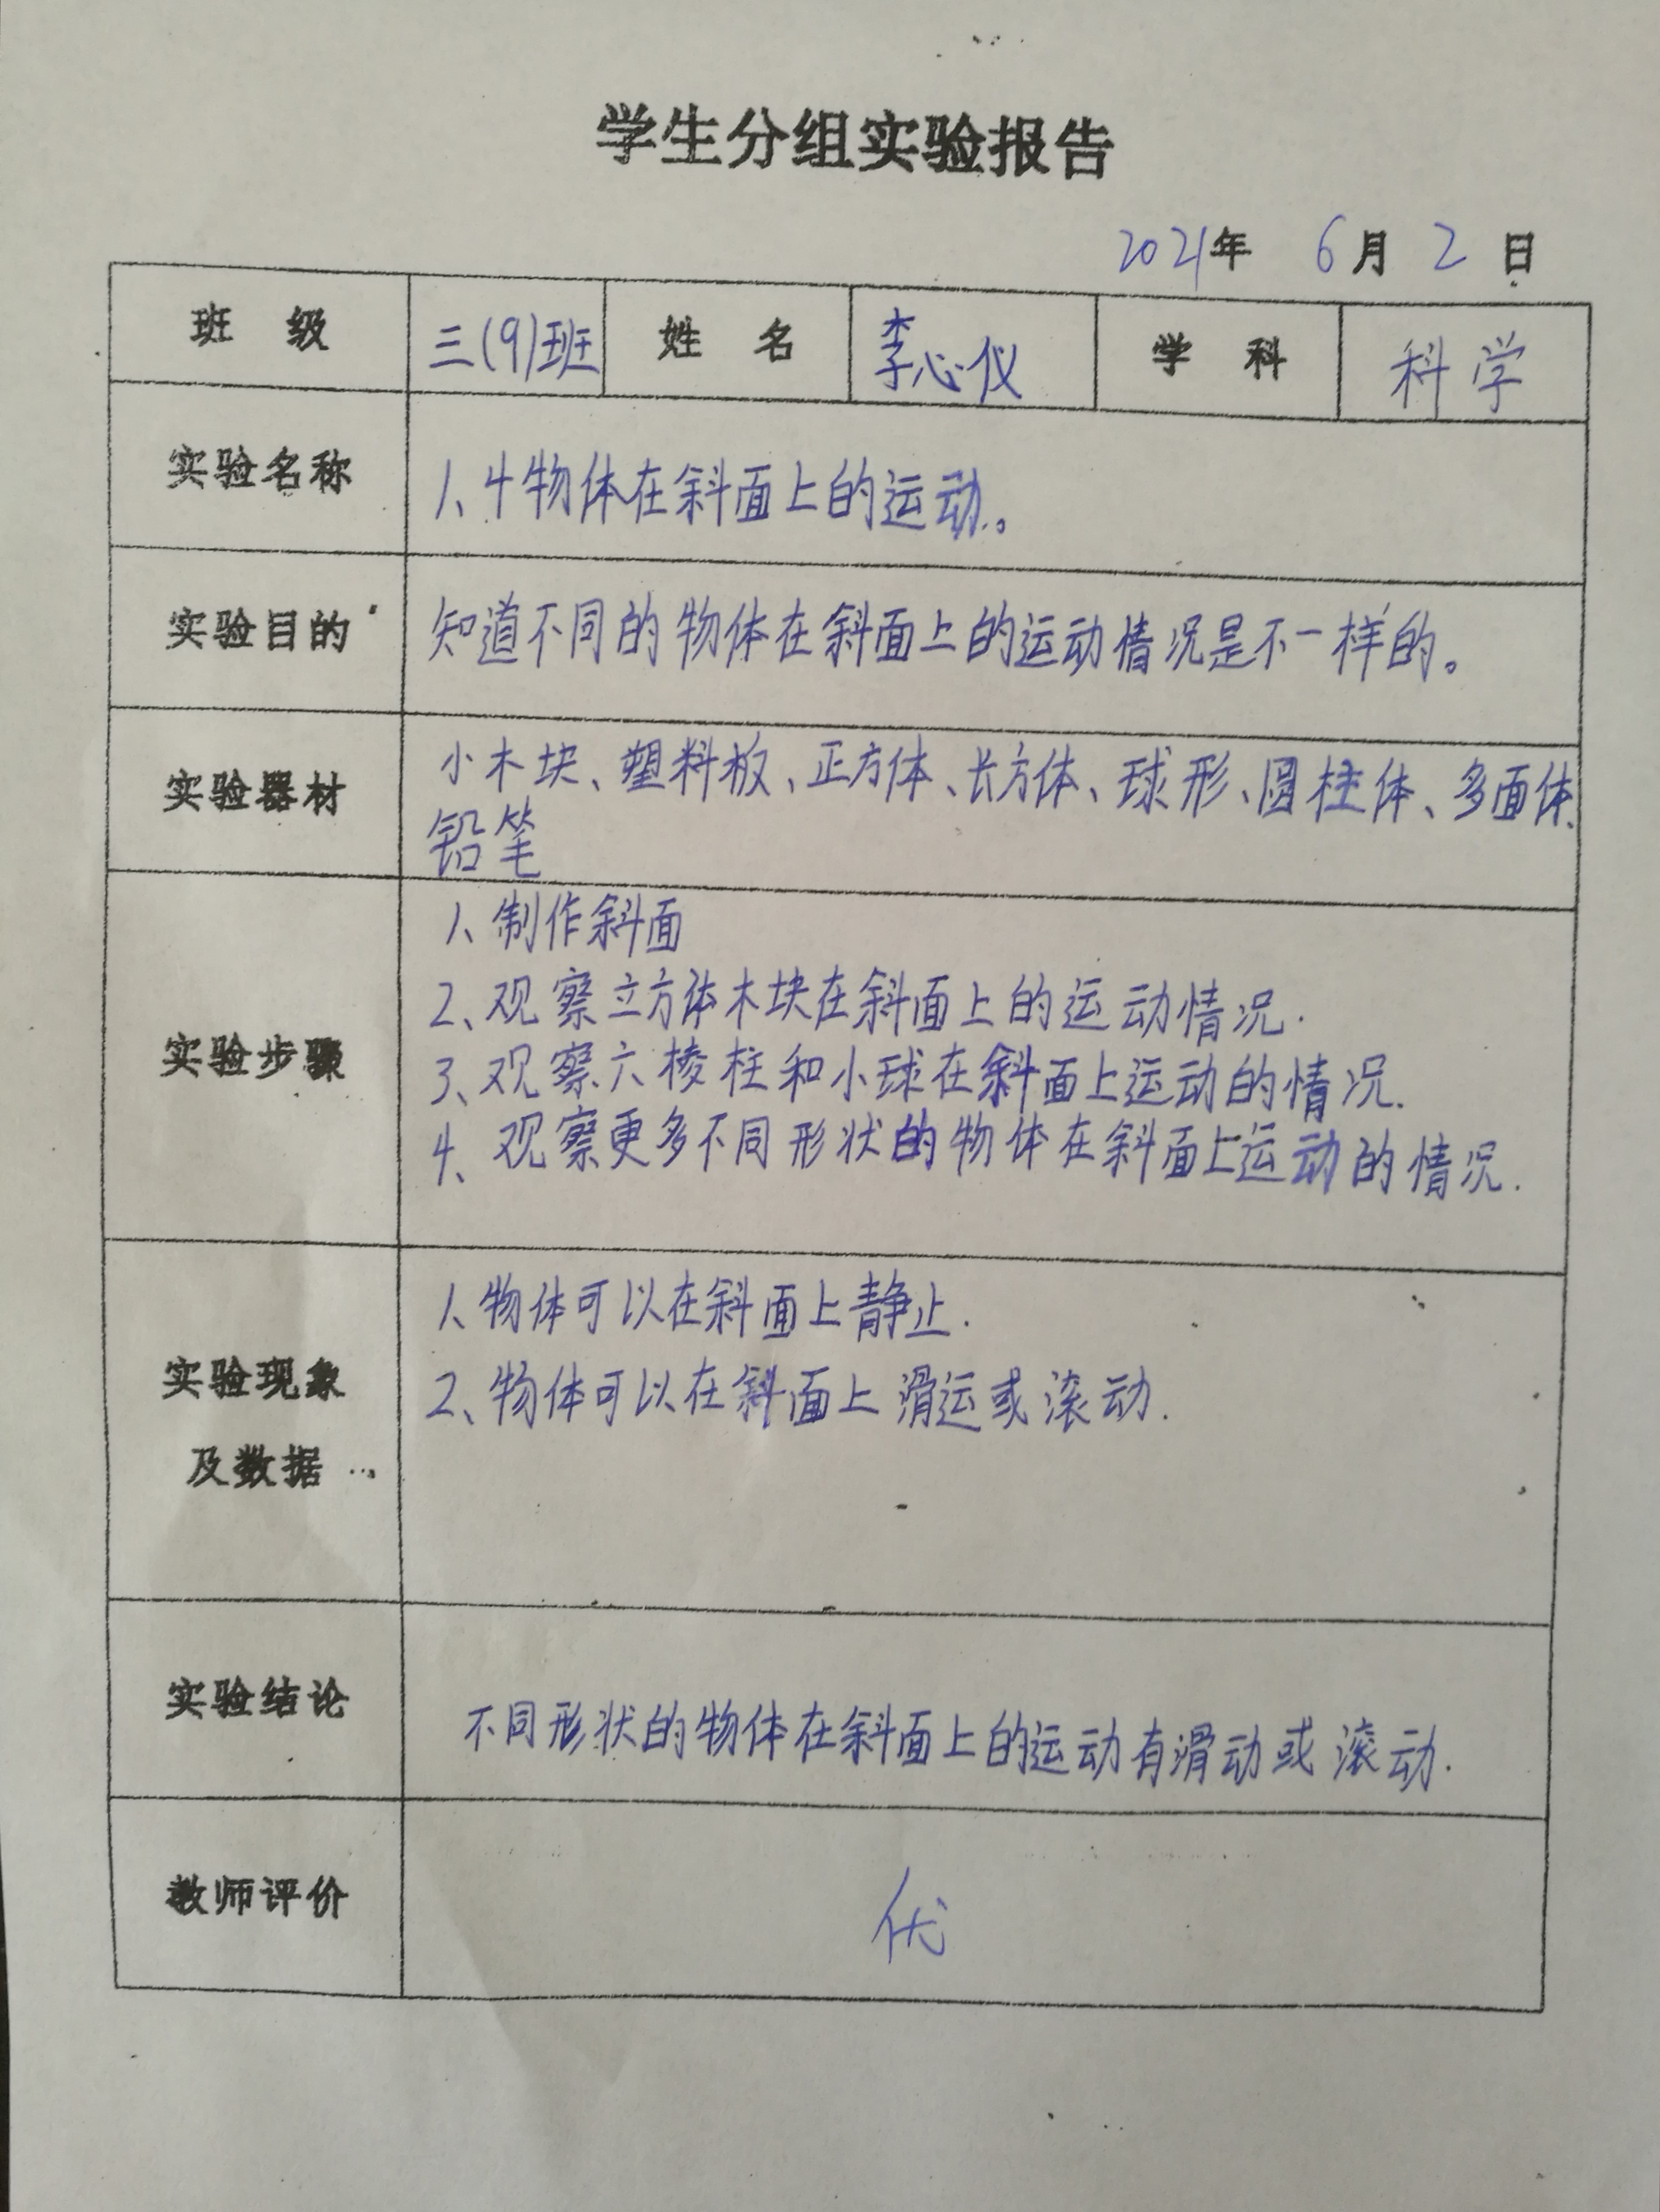 学生分组实验报告
2021年 6月 2日
班级 三(9)班 姓名 李心仪 学科 科学
实验名称 1、4物体在斜面上的运动。
实验目的 知道不同的物体在斜面上的运动情况是不一样的。
实验器材 小木块、塑料板、正方体、长方体、球形、圆柱体、多面体、
铅笔
1、制作斜面
2、观察立方体木块在斜面上的运动情况.
实验步骤 3、观察六棱柱和小球在斜面上运动的情况.
4、观察更多不同形状的物体在斜面上运动的情况.
1、物体可以在斜面上静止.
实验现象 2、物体可以在斜面上滑运或滚动.
及数据
实验结论 不同形状的物体在斜面上的运动有滑动或滚动.
教师评价 优